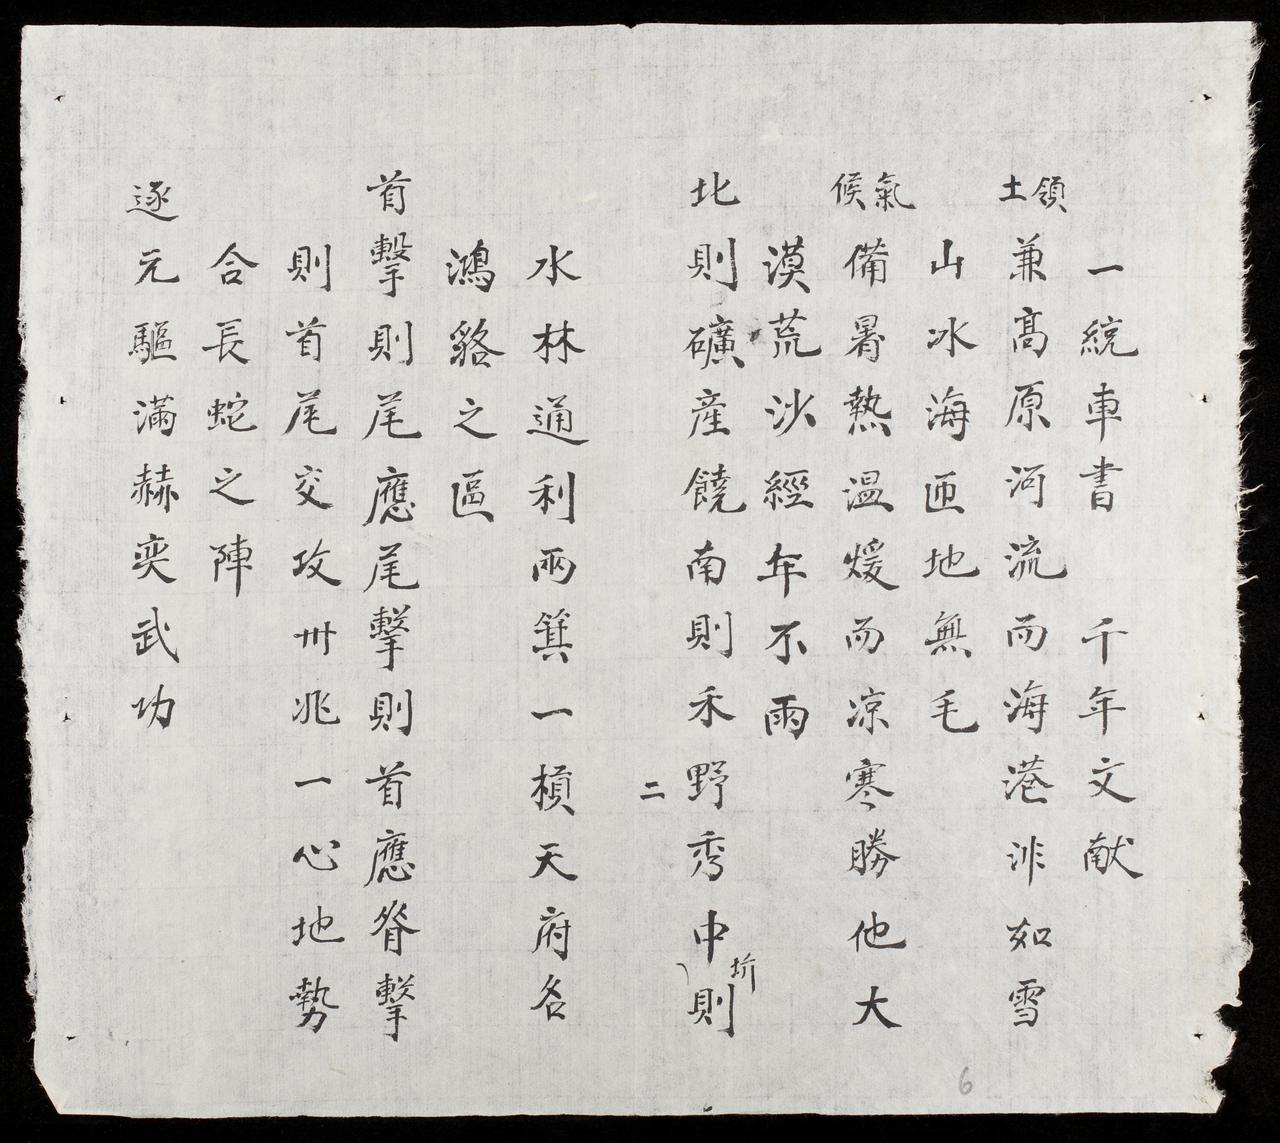 一統車書 千年文献
領土兼高原河流而海港非如雪
山冰海匝地無毛
氣候備暑熱温煖而凉寒勝他大
漠荒沙經年不雨
北則礦産饒南則禾野秀中圻則
二
水林通利兩箕一楨天府名
鴻貉之區
首擊則尾應尾擊則首應脊擊
則首尾交攻卅兆一心地勢
合長蛇之陣
逐元驅滿赫奕武功
6